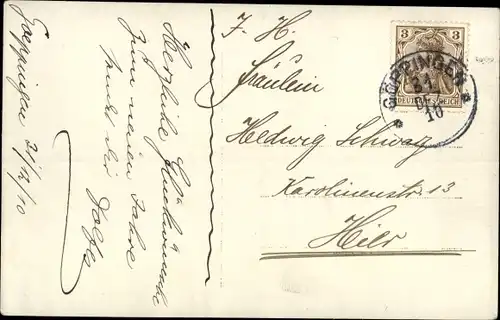 Goeppingen 31/12/10
Herzliche Glückwünsche
zum neuen Jahre
sendet Dir
F. H.
Fräulein
Hedwig Schwarz
Karolinenstr. 13
Hier
3 3
DEUTSCHES REICH
GÖPPINGEN
31
DE
10